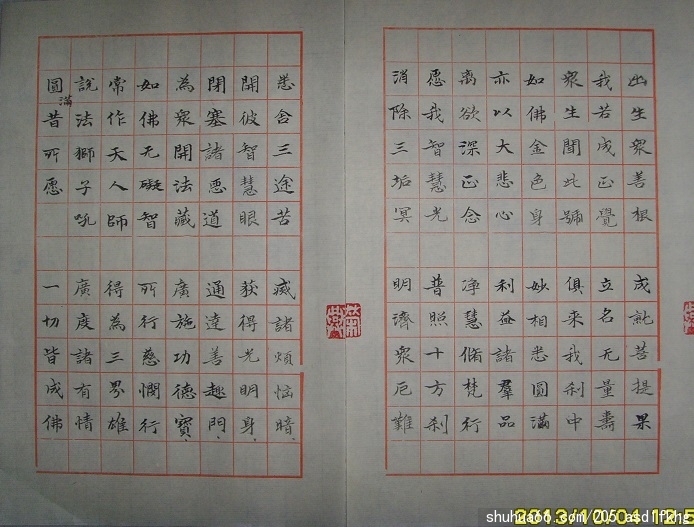 出生眾善根 成就菩提果
我若成正覺 立名无量壽
眾生聞此號 俱來我刹中
如佛金色身 妙相悉圓滿
亦以大悲心 利益諸羣品
离欲深正念 净慧俻梵行
愿我智慧光 普照十方刹
消除三垢冥 明濟眾厄難
悉舍三途苦 滅諸煩惱暗
開彼智慧眼 获得光明身
閉塞諸惡道 通達善趣門
為眾開法藏 廣施功德寶
如佛无礙智 所行慈憫行
常作天人師 得為三界雄
說法獅子吼 廣度諸有情
圓滿昔所愿 一切皆成佛
shuhuaoo.com/205